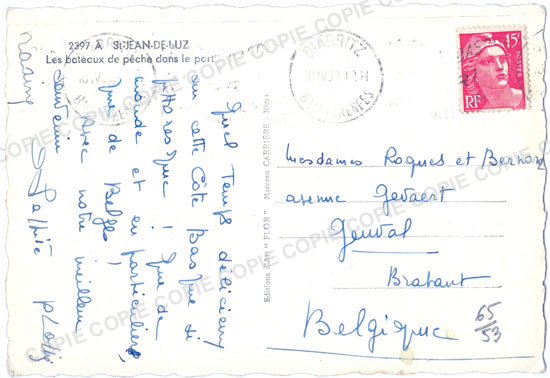 2397 A St-JEAN-DE-LUZ
Les bateaux de pêche dans le port
Quel temps délicieux
sur cette Côte Basque si
pittoresque ! Que de
monde et en particulier
que de Belges,
Avec notre meilleur
souvenir
Editions d'Art "FLOR" Marceau CARRIERE
BIARRITZ
12H
Bses PYRENEES
15F
RF
Mesdames Roques et
avenue Gevaert
Genval
Brabant
Belgique
65/53
COPIE COPIE COPIE COPIE COPIE COPIE